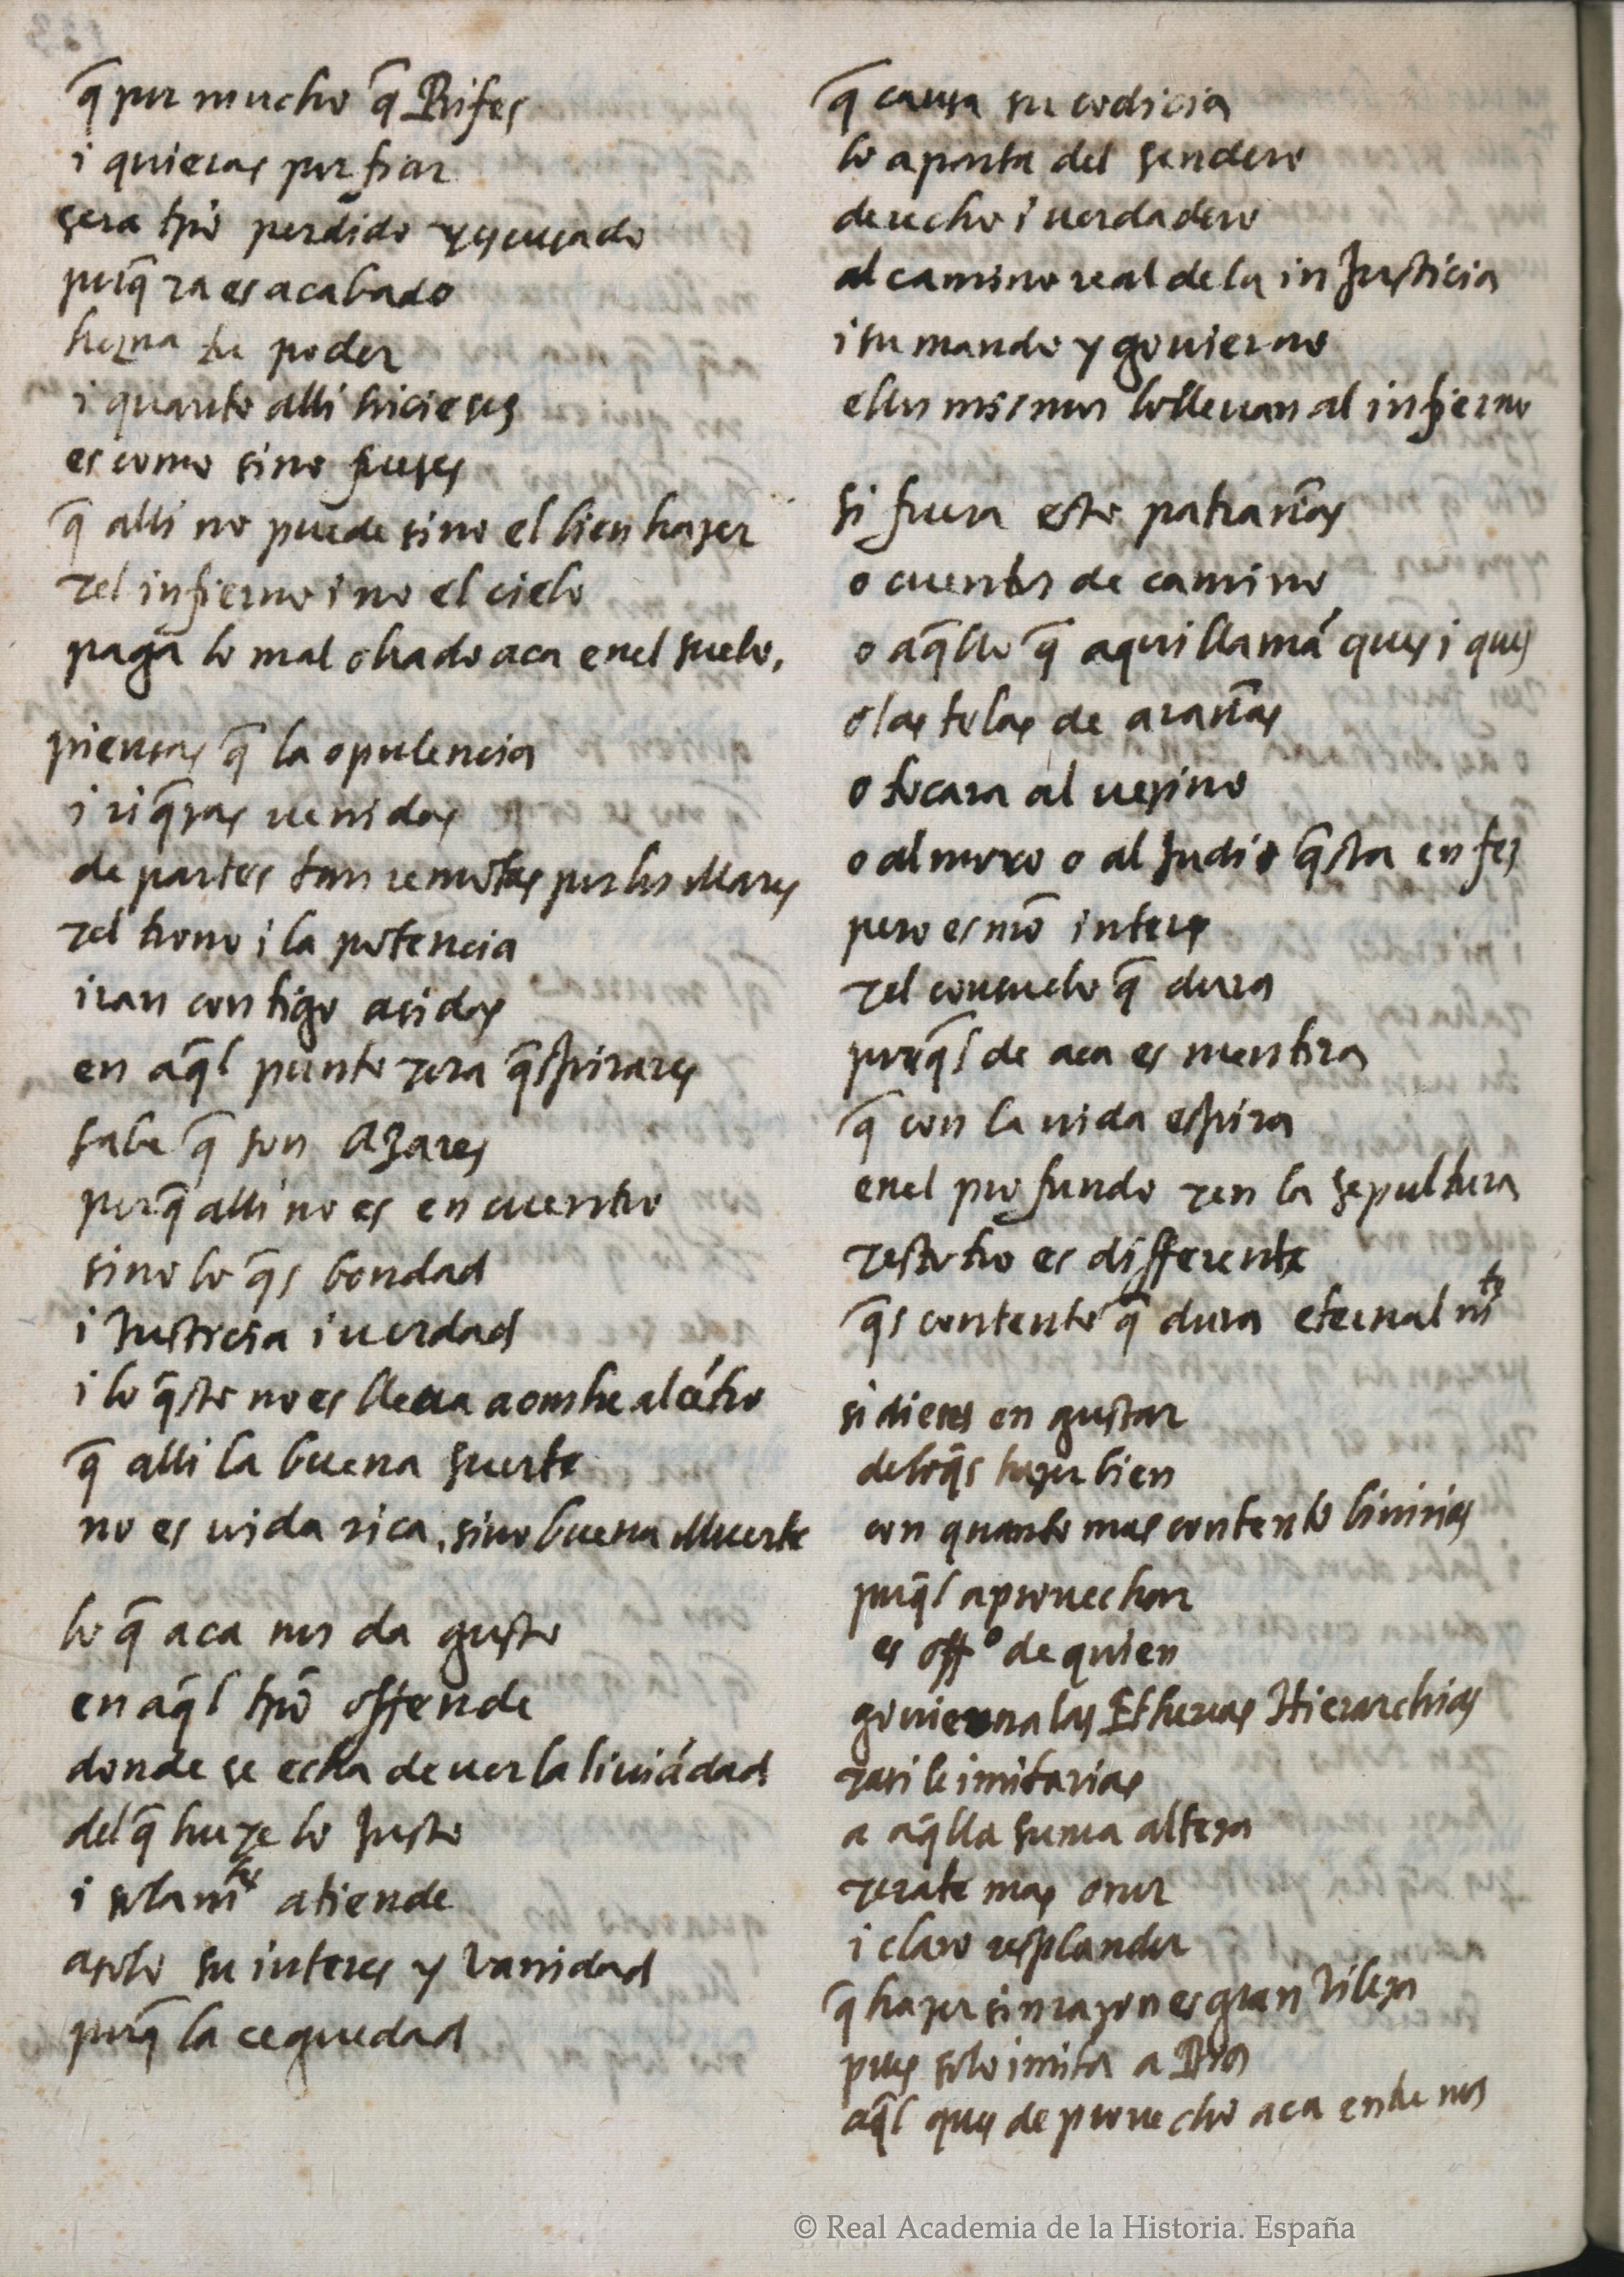 q̃ por mucho q̃ Rifes
i quieras porfiar
sera tpõ perdido yscusado
porq̃ ya es acabado
tu poder
i quanto alli hicieses
es como sino fueses
q̃ alli no puede sino el bien hazer
yel infierno i no el cielo
pagã lo mal obrado aca enel suelo,
piensas q̃ la opulencia
i riq̃zas uenidas
de partes tan remotas por los Mares
yel trono i la potencia
iran contigo asidas
en aq̃l punto yora q̃spirares
sabe q̃ son Azares
porq̃ alli no es encuentro
sino lo q̃s bondad
i Justicia i uerdad
i lo q̃sto no es lleua aombre alcẽtro
q̃ alli la buena suerte
no es uida rica, sino buena Muerte
lo q̃ aca nos da gusto
en aq̃l tpõ offende
donde se echa de uer la liuiãdad
del q̃ huye lo Justo
i solam̃te atiende
asolo su interes y Vanidad
porq̃ la ceguedad
q̃ causa su codicia
lo aparta del sendero
derecho i uerdadero
al camino real de la inJusticia
i su mando y gouierno
ellos mismos lo lleuan al infierno
si fuera esto patrañas
o cuentos de camino
o aq̃llo q̃ aqui llamã ques i ques
o las telas de arañas
o tocara al uezino
o al moro o al Judio q̃sta en fez
pero es nr̃o interes
yel consuelo q̃ dura
porq̃l de aca es mentira
q̃ con la uida espira
enel profundo yen la sepultura
yestotro es differente
q̃s contento q̃ dura eternalm̃te
si dieses en gustar
de lo q̃s hazer bien
con quanto mas contento biuirias
porq̃l aprouechar
es offº de quien
gouierna las Ethereas Hierarchias
yasi le imitarias
a aq̃lla suma alteza
yerate mas onor
i claro resplandor
q̃ hazer sinrazon es gran Vileza
pues solo imita a Dios
aq̃l ques de prouecho aca entre nos
© Real Academia de la Historia. España